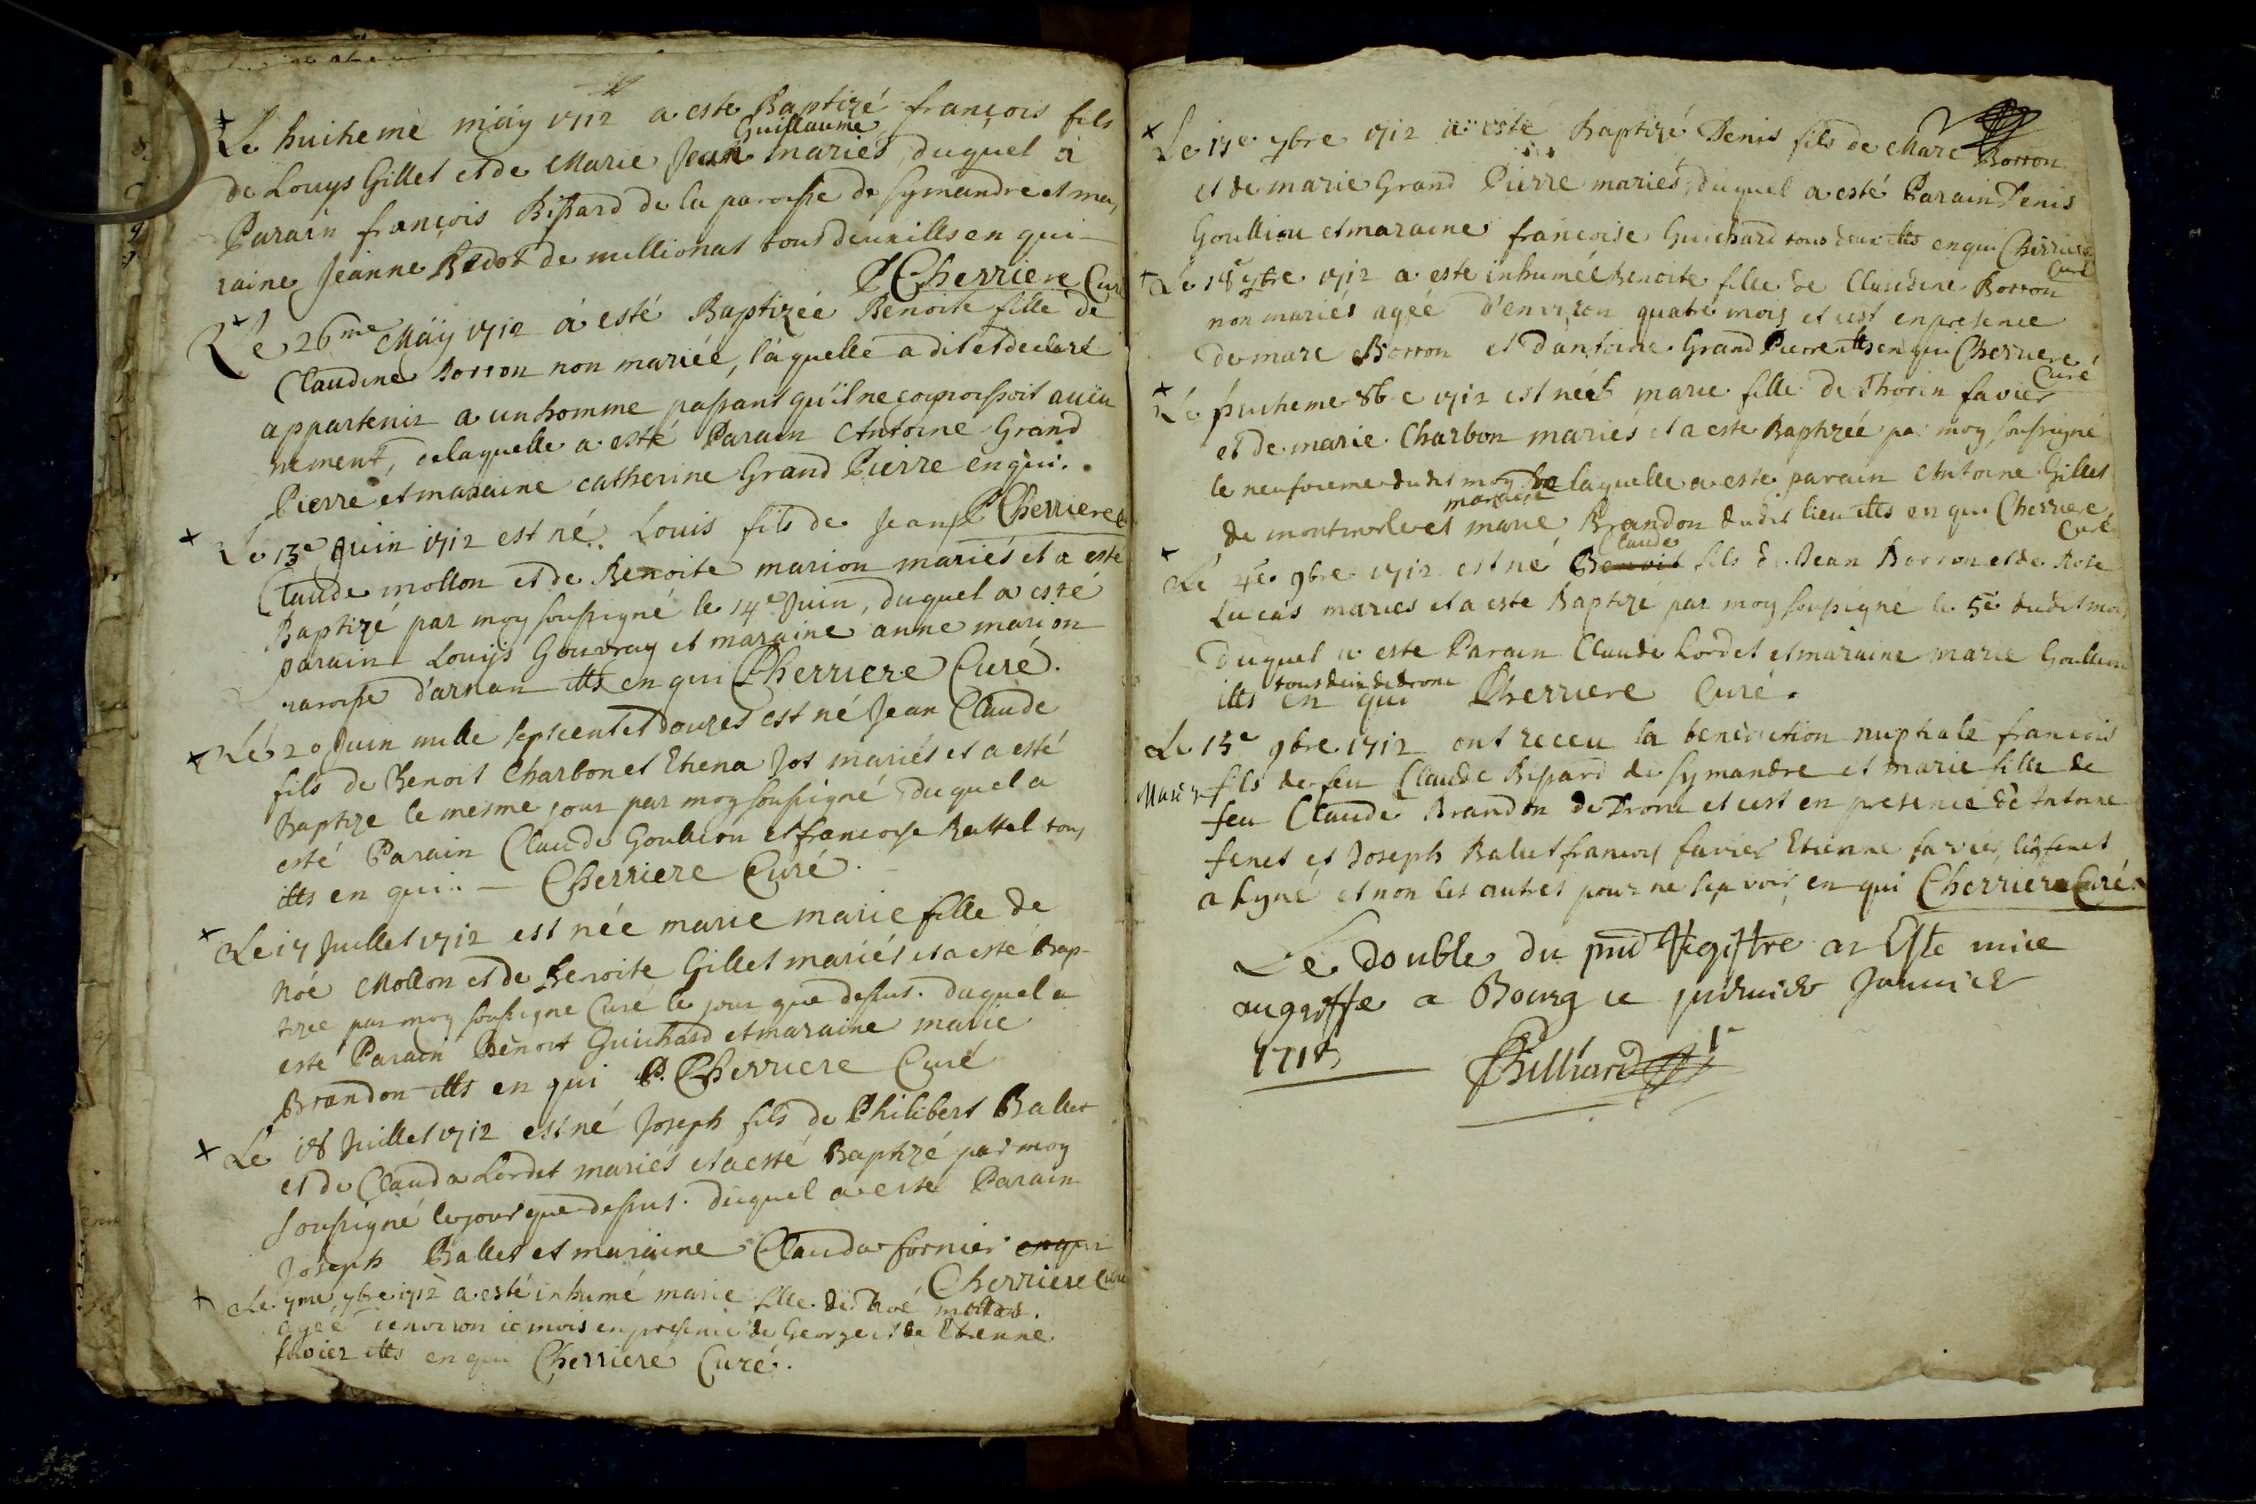 Le huitheme mäy 1712 a este Baptizé françois fils
Guillaume
de Louys Gillet et de Marie Jean mariés, duquel a
Parain françois Bissard de la paroisse de symandre et ma,
raine Jeanne Bedot de millionat tous deux illts en qui
P Cherriere Curé
Le 26me Mäy 1712 a esté Baptizée Benoite fille de
Claudine Borron non mariée, laquelle a dit et declaré
appartenir a un homme passant qu'il ne connoissoit aucu
nement, de laquelle a esté Parain Antoine Grand
Pierre et maraine catherine Grand Pierre en qui.
P Cherriere C
Le 13e Juin 1712 est né Louis fils de Jean
Claude mollon et de Benoite marion mariés et a este
Baptizé par moy soussigné le 14e Juin, duquel a esté
parain Louys Gouvray et maraine anne marion
paroisse d'arnan illts en qui Cherriere Curé.
Le 20 Juin mille sepscent et douzes est né Jean Claude
fils de Benoit Charbon et Ehena Jos mariés et a esté
Baptize le mesme jour par moy soussigné duquel a
esté Parain Claude Goullion et francoise Rattel tous
illts en qui. Cherriere Curé.
Le 17 Juillet 1712 est née marie marie fille de
Noé Mollon et de Benoite Gillet mariés et a esté Bap-
tizee par moy soussigne Curé le jour que dessus. duquel a
esté Parain Benoit Guichard et maraine marie
Brandon illts en qui P. Cherriere Curé
Le 18 Juillet 1712 est né Joseph fils de Philibert Ballet
et de Clauda Lordet mariés et a esté Baptizé par moy
soussigné le jour que dessus. duquel a este Parain
Joseph Ballet et maraine Clauda fornier en qui
Cherriere Curé
Le 7me 7bre 1712 a esté inhumé marie fille de Noé mollon.
agée d'environ mois en presence de George et de Etienne
favier illts en qui Cherriere Curé.
Le 17e 7bre 1712 a este Baptizé Denis fils de Marc Borron
et de marie Grand Pierre mariés, duquel a esté Parain Denis
Goullion et maraine francoise Guichard tous deux illts en qui Cherriere
Curé
Le 18e 7bre 1712 a este inhumée Benoite fille de Claudine Borron
non mariés agée d'environ quatre mois et cest en presence
de marc Borron et d'antoine Grand Pierre illts en qui Cherriere
Curé
Le huitheme 8bre 1712 est née marie fille de Thorin favier
et de marie Charbon mariés et a este Baptizée par moy soussigné
le neufvieme dudit moy de laquelle a este parain Antoine Gillet
maraine
de montmerle et marie Brandon dudit lieu illts en qui Cherriere
Curé
Claude
Le 4e 9bre 1712 est né Benoit fils de Jean Borron et de Rose
Lucas maries et a este Baptize par moy soussigné le 5e dudit mois
duquel a este Parain Claude Lordet et maraine marie Goullion
tous deux de Drom
illts en qui Cherriere Curé.
Le 15e 9bre 1712 ont receu la benediction nuptiale francois
fils de feu Claude Bissard de symandre et marie fille de
feu Claude Brandon de Drom et cest en presence de Antoine
fenet et Joseph Balet francois favier Etienne favier, ledt fenet
a signé et non les autres pour ne scavoir, en qui Cherriere Curé.
Le double du pnt Registre a Este mice
au greffe a Bourg ce premier Janvier
1713
Billiard